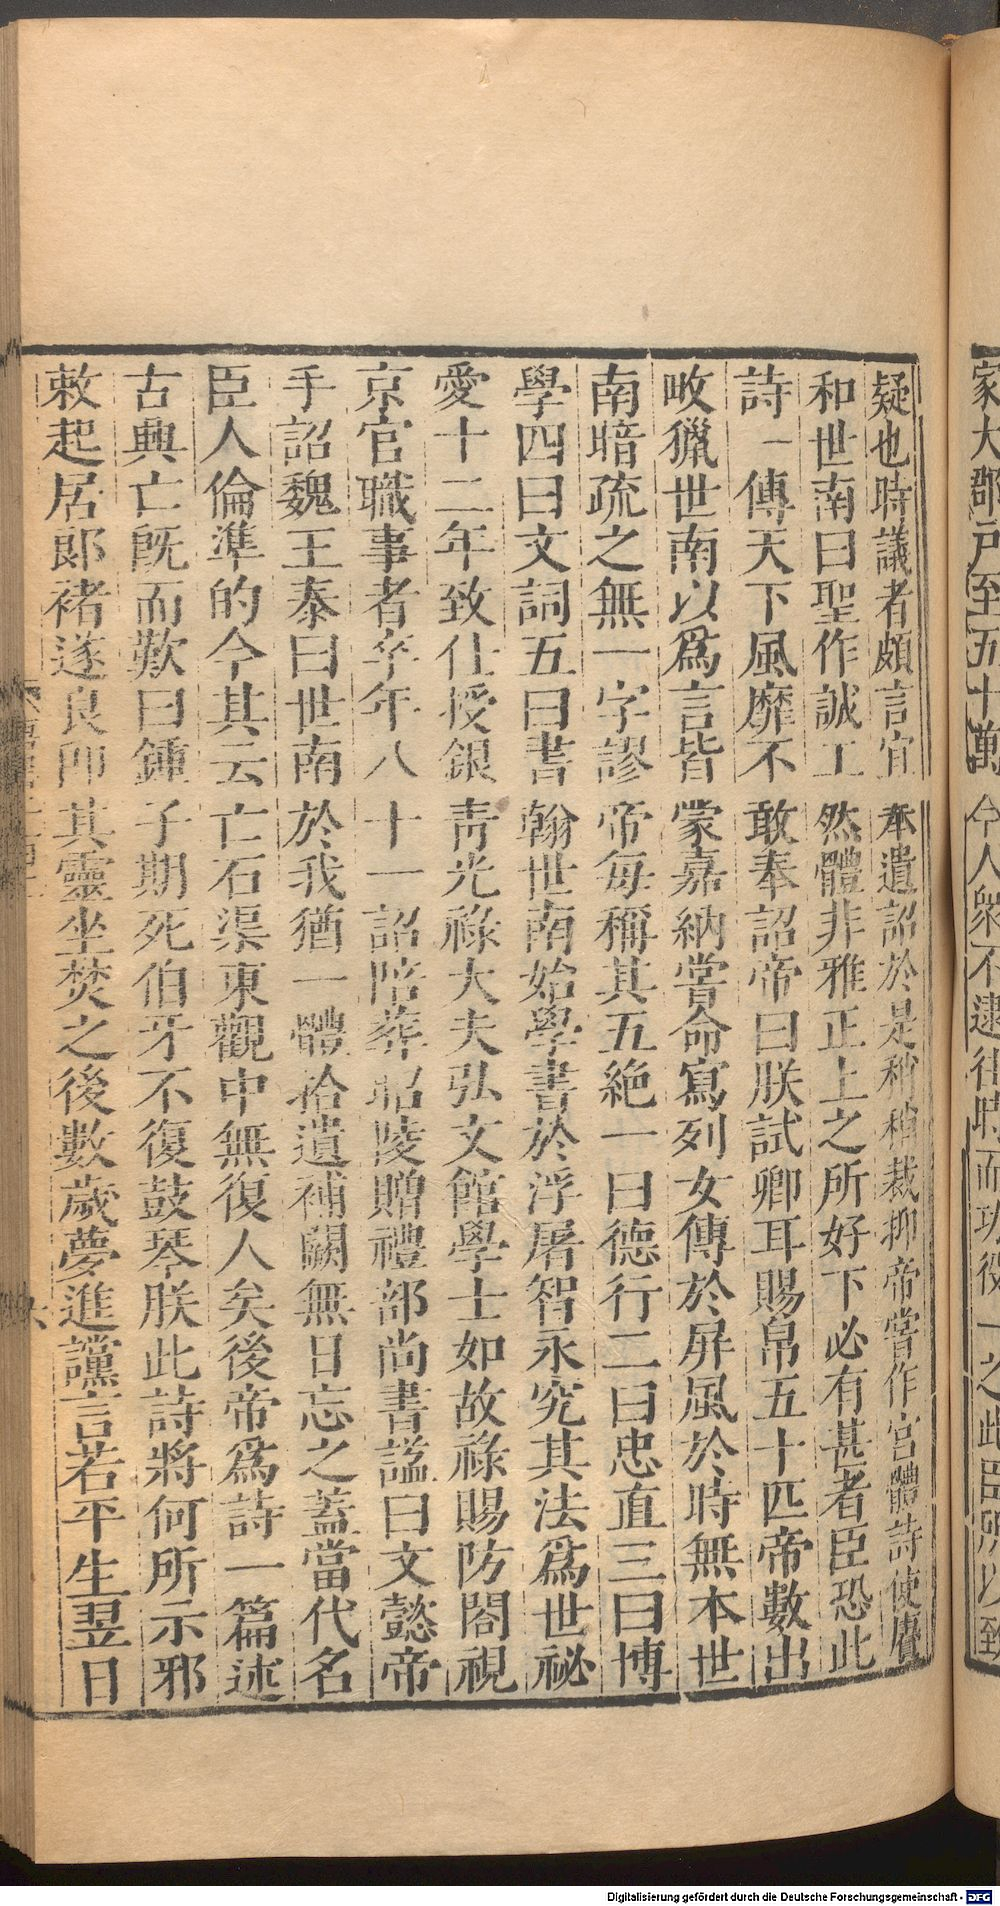 家大郡戸至五十萬今人衆不逮往時而功役一之此臣所以致
疑也時議者頗言宜奉遺詔於是稍稍裁抑帝嘗作宫體詩使賡
和世南曰聖作誠工然體非雅正上之所好下必有甚者臣恐此
詩一傳天下風靡不敢奉詔帝曰朕試卿耳賜帛五十匹帝數出
畋獵世南以爲言皆蒙嘉納嘗命寫列女傳於屏風於時無本世
南暗疏之無一字謬帝每稱其五絶一曰德行二曰忠直三曰博
學四曰文詞五曰書翰世南始學書於浮屠智永究其法爲世祕
愛十二年致仕授銀青光祿大夫弘文館學士如故祿賜防閤視
京官職事者卒年八十一詔陪葬昭陵贈禮部尚書謚曰文懿帝
手詔魏王泰曰世南於我猶一體拾遺補闕無日忘之蓋當代名
臣人倫準的今其云亡石渠東觀中無復人矣後帝爲詩一篇述
古興亡旣而歎曰鍾子期死伯牙不復鼓琴朕此詩將何所示邪
敕起居郎褚遂良卽其靈坐焚之後數歲夢進讜言若平生翌日
Digitalisierung gefördert durch die Deutsche Forschungsgemeinschaft - DFG